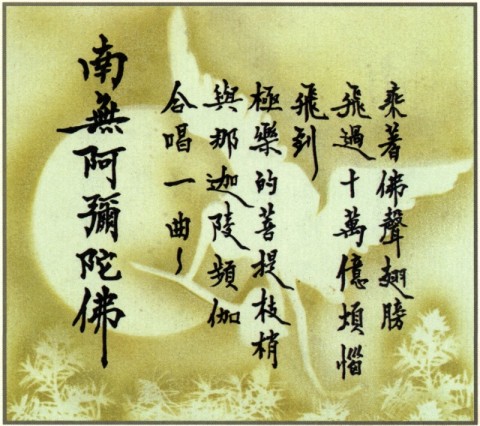 乘著佛聲翅膀
飛過十萬億煩惱
飛到
極樂的菩提枝梢
與那迦陵頻伽
合唱一曲～
南無阿彌陀佛